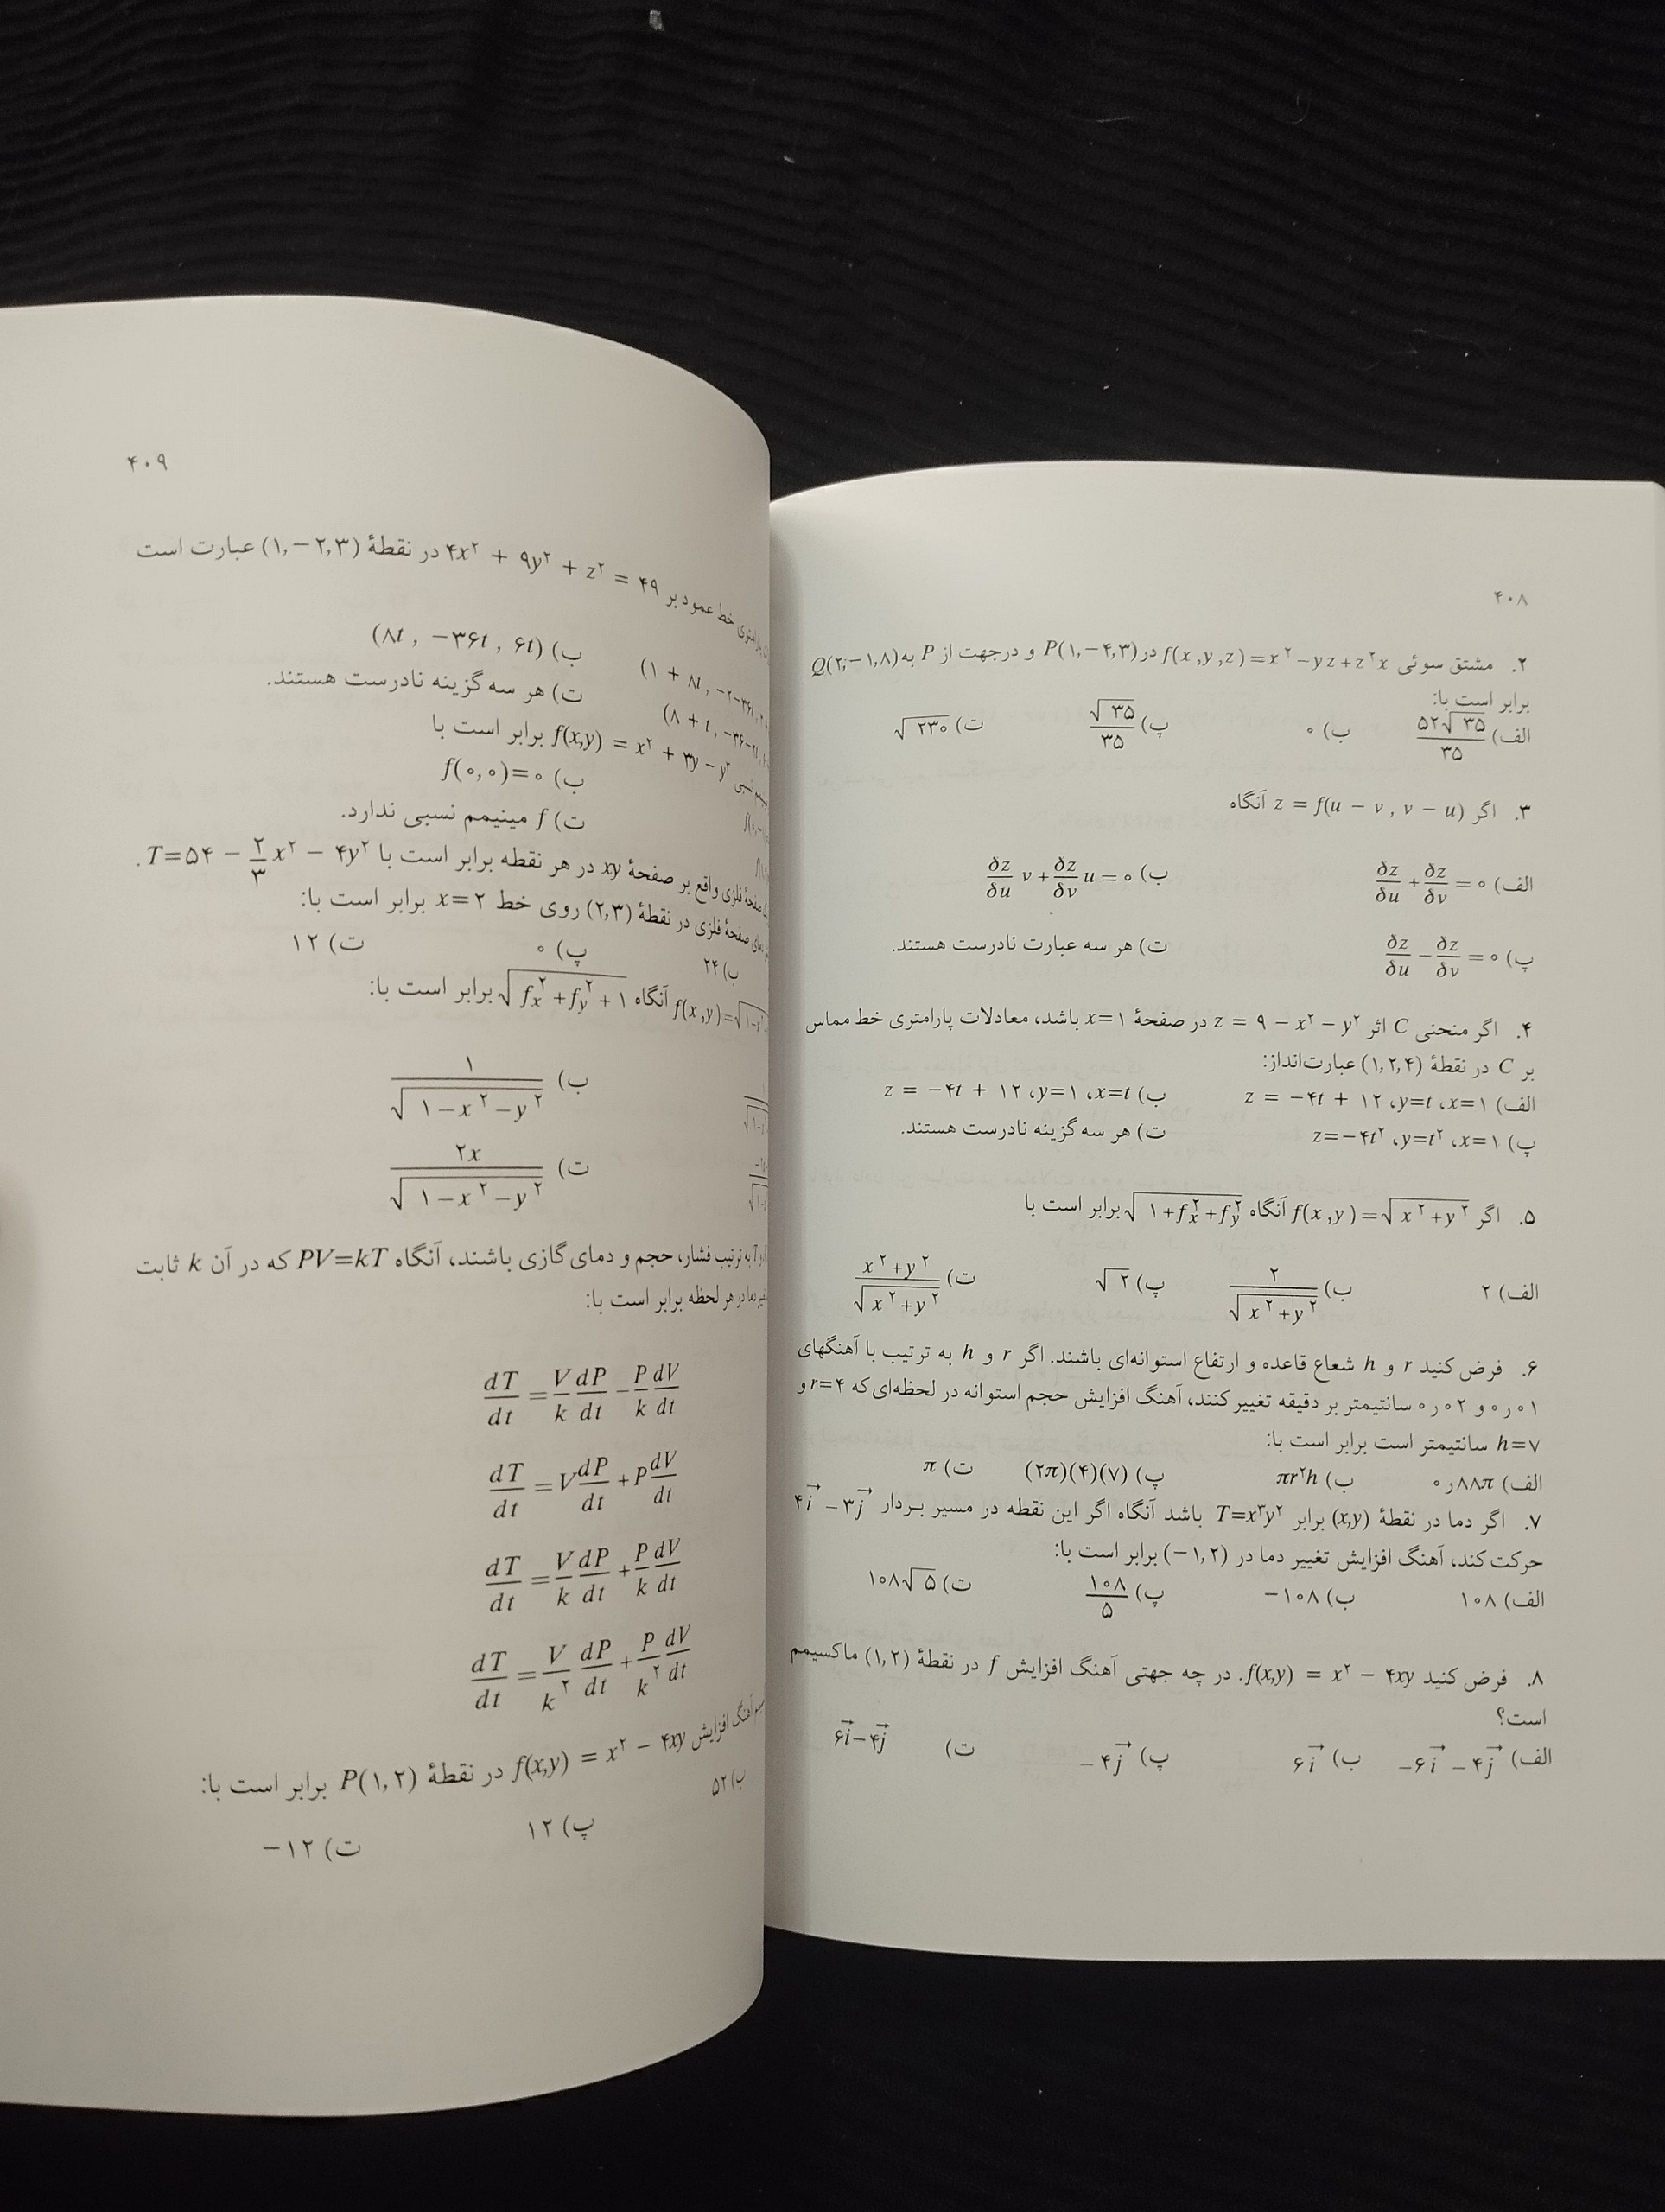 ۴۰۸
۲. مشتق سوئی f(x,y,z)=x^۲-yz+z^۲x در P(۱,-۴,۳) و درجهت از P به Q(۲,-۱,۸)
برابر است با:
الف) ۵۲√۳۵/۳۵ ب) ۰ پ) √۳۵/۳۵ ت) √۲۳۰
۳. اگر z = f(u - v, v - u) آنگاه
الف) ∂z/∂u + ∂z/∂v = ۰ ب) ∂z/∂u v + ∂z/∂v u = ۰
پ) ∂z/∂u - ∂z/∂v = ۰ ت) هر سه عبارت نادرست هستند.
۴. اگر منحنی C اثر z = ۹ - x^۲ - y^۲ در صفحهٔ x=۱ باشد، معادلات پارامتری خط مماس
بر C در نقطهٔ (۱,۲,۴) عبارت‌انداز:
الف) x=۱، y=t، z = -۴t + ۱۲ ب) x=t، y=۱، z = -۴t + ۱۲
پ) x=۱، y=t^۲، z=-۴t^۲ ت) هر سه گزینه نادرست هستند.
۵. اگر f(x,y)=√(x^۲+y^۲) آنگاه √(۱+f_x^۲+f_y^۲) برابر است با
الف) ۲ ب) ۲/√(x^۲+y^۲) پ) √۲ ت) (x^۲+y^۲)/√(x^۲+y^۲)
۶. فرض کنید r و h شعاع قاعده و ارتفاع استوانه‌ای باشند. اگر r و h به ترتیب با آهنگهای
۰٫۰۱ و ۰٫۰۲ سانتیمتر بر دقیقه تغییر کنند، آهنگ افزایش حجم استوانه در لحظه‌ای که r=۴ و
h=۷ سانتیمتر است برابر است با:
الف) ۰٫۸۸π ب) πr^۲h پ) (۲π)(۴)(۷) ت) π
۷. اگر دما در نقطهٔ (x,y) برابر T=x^۳y^۲ باشد آنگاه اگر این نقطه در مسیر بردار ۴i⃗ - ۳j⃗
حرکت کند، آهنگ افزایش تغییر دما در (-۱,۲) برابر است با:
الف) ۱۰۸ ب) -۱۰۸ پ) ۱۰۸/۵ ت) ۱۰۸√۵
۸. فرض کنید f(x,y) = x^۲ - ۴xy. در چه جهتی آهنگ افزایش f در نقطهٔ (۱,۲) ماکسیمم
است؟
الف) -۶i⃗ - ۴j⃗ ب) ۶i⃗ پ) -۴j⃗ ت) ۶i⃗-۴j⃗
۴۰۹
خط عمود بر ۴x^۲ + ۹y^۲ + z^۲ = ۴۹ در نقطهٔ (۱,-۲,۳) عبارت است
(۱ + ۸t, -۲-۳۶t, ب) (۸t, -۳۶t, ۶t)
(۸ + t, -۳۶-۲t, ت) هر سه گزینه نادرست هستند.
f(x,y) = x^۲ + ۳y - y^۳ برابر است با
ب) f(۰,۰)=۰
ت) f مینیمم نسبی ندارد.
صفحهٔ فلزی واقع بر صفحهٔ xy در هر نقطه برابر است با T=۵۴ - ۲/۳ x^۲ - ۴y^۲.
دمای صفحهٔ فلزی در نقطهٔ (۲,۳) روی خط x=۲ برابر است با:
ب) ۲۴ پ) ۰ ت) ۱۲
f(x,y)=√ آنگاه √(f_x^۲+f_y^۲+۱) برابر است با:
ب) ۱/√(۱-x^۲-y^۲)
ت) ۲x/√(۱-x^۲-y^۲)
به ترتیب فشار، حجم و دمای گازی باشند، آنگاه PV=kT که در آن k ثابت
دما در هر لحظه برابر است با:
dT/dt = V/k dP/dt - P/k dV/dt
dT/dt = V dP/dt + P dV/dt
dT/dt = V/k dP/dt + P/k dV/dt
dT/dt = V/k^۲ dP/dt + P/k^۲ dV/dt
آهنگ افزایش f(x,y) = x^۲ - ۴xy در نقطهٔ P(۱,۲) برابر است با:
ب) ۵۲ پ) ۱۲ ت) -۱۲